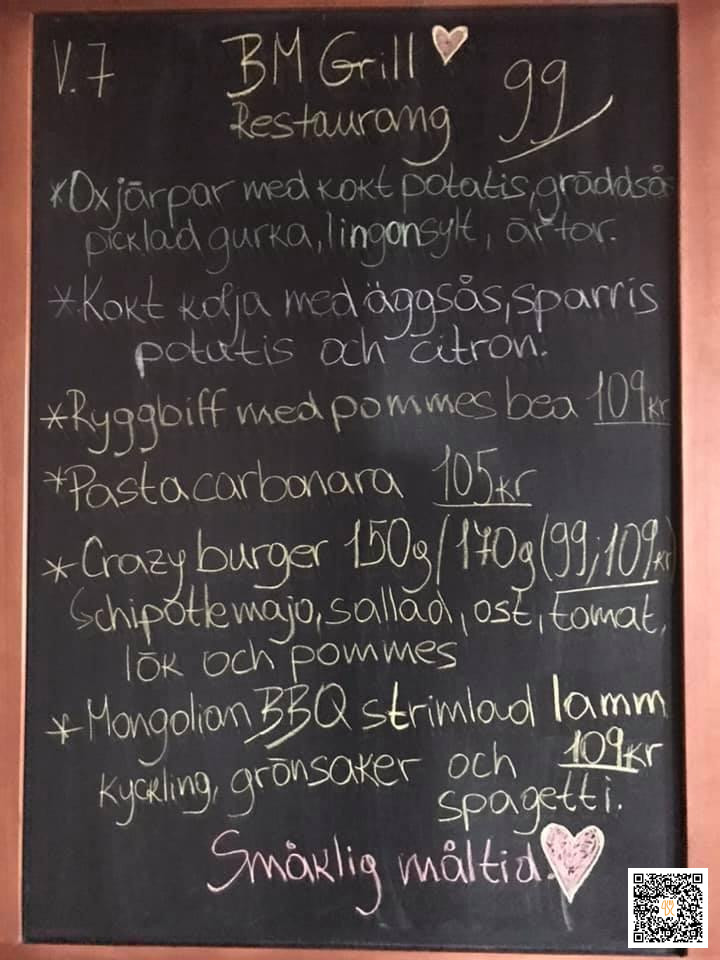 V.7 BM Grill
Restaurang 99
*Oxjärpar med kokt potatis, gräddsås
picklad gurka, lingonsylt, ärtor.
*Kokt kolja med äggsås, sparris
potatis och citron.
*Ryggbiff med pommes bea 109kr
*Pasta carbonara 105kr
*Crazy burger 150g/170g (99;109kr)
(chipotlemajo, sallad, ost, tomat,
lök och pommes
*Mongolian BBQ strimlad lamm
kyckling, grönsaker och 109kr
spagetti.
Smaklig måltid.